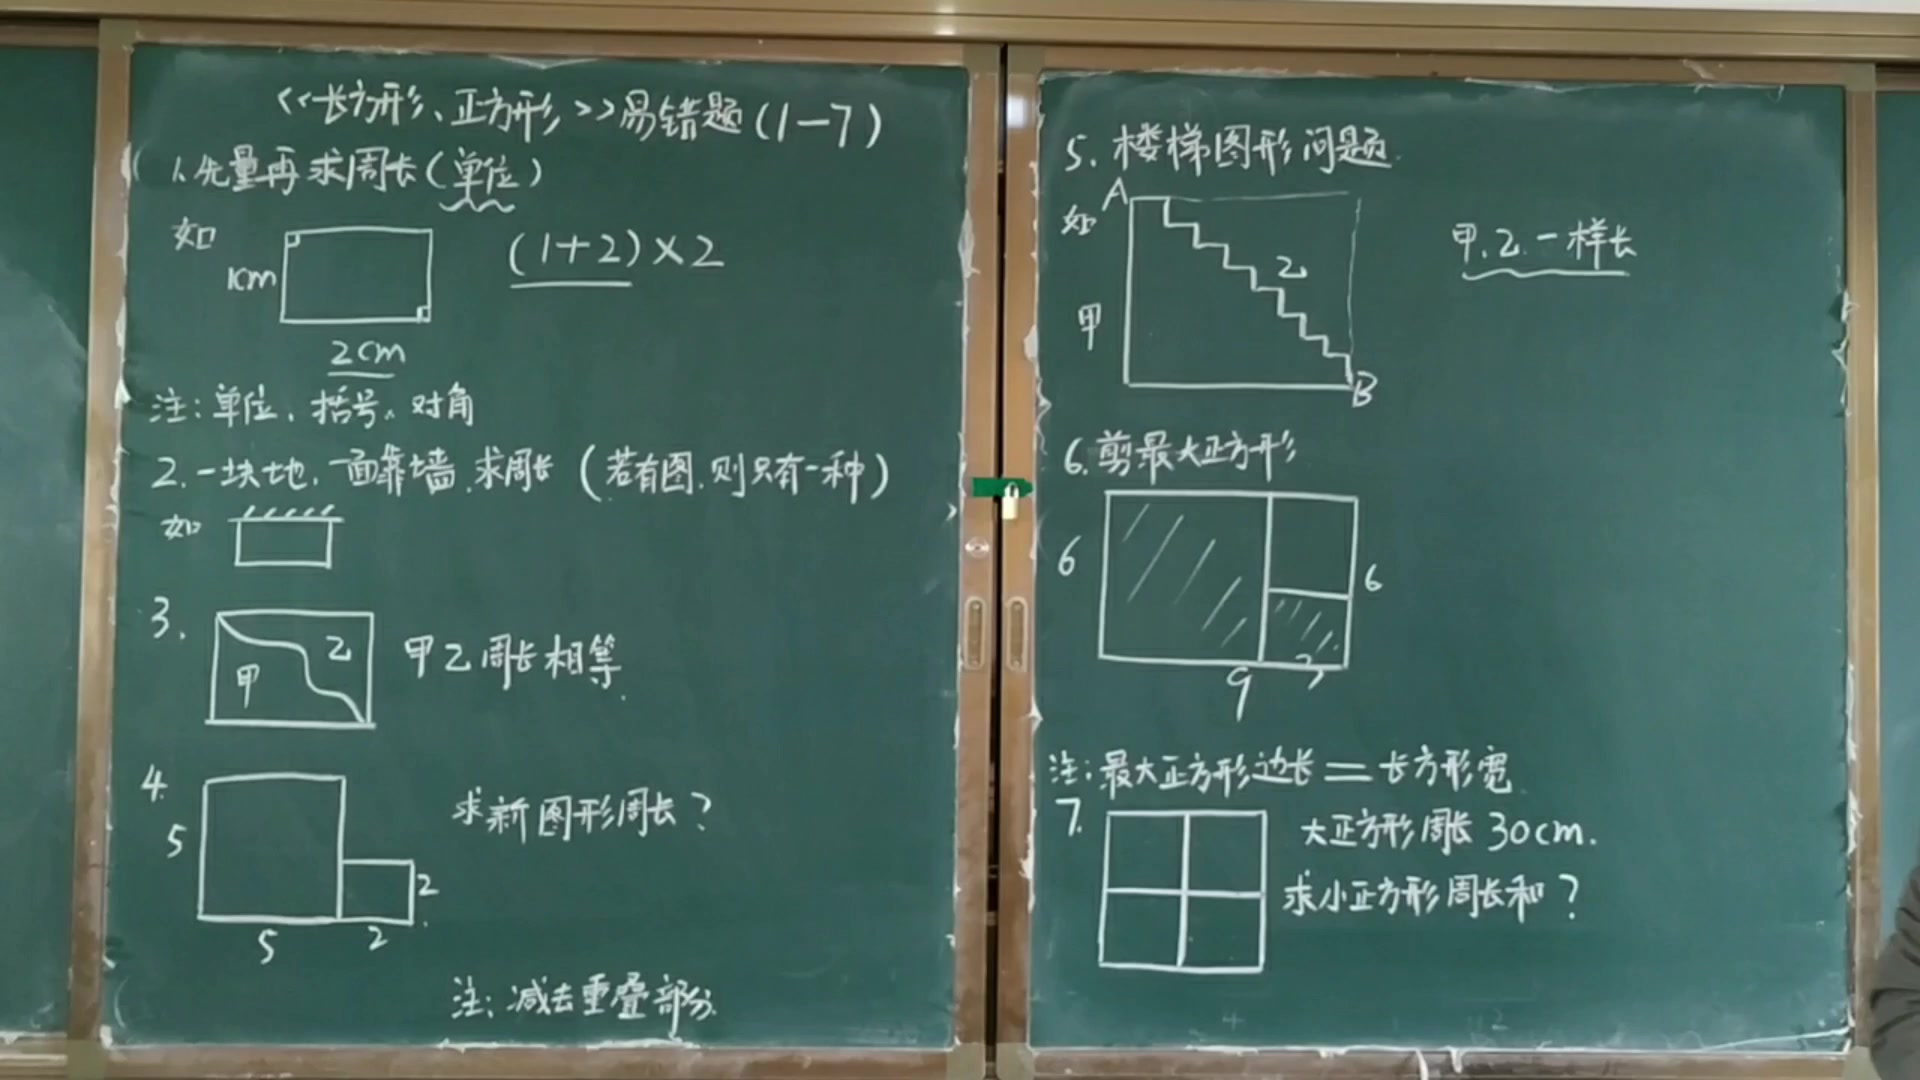 <<长方形、正方形>>易错题(1—7)
1.先量再求周长(单位)
如
1cm
(1+2)×2
2cm
注:单位、括号、对角
2.一块地,一面靠墙,求周长(若有图,则只有一种)
如
3.
甲
乙
甲乙周长相等.
4.
5
求新图形周长?
2
5
2
注:减去重叠部分.
5.楼梯图形问题.
A
如
乙
甲.乙.一样长
甲
B
6.剪最大正方形
6
6
9
3
注:最大正方形边长=长方形宽.
7.
大正方形周长30cm.
求小正方形周长和?